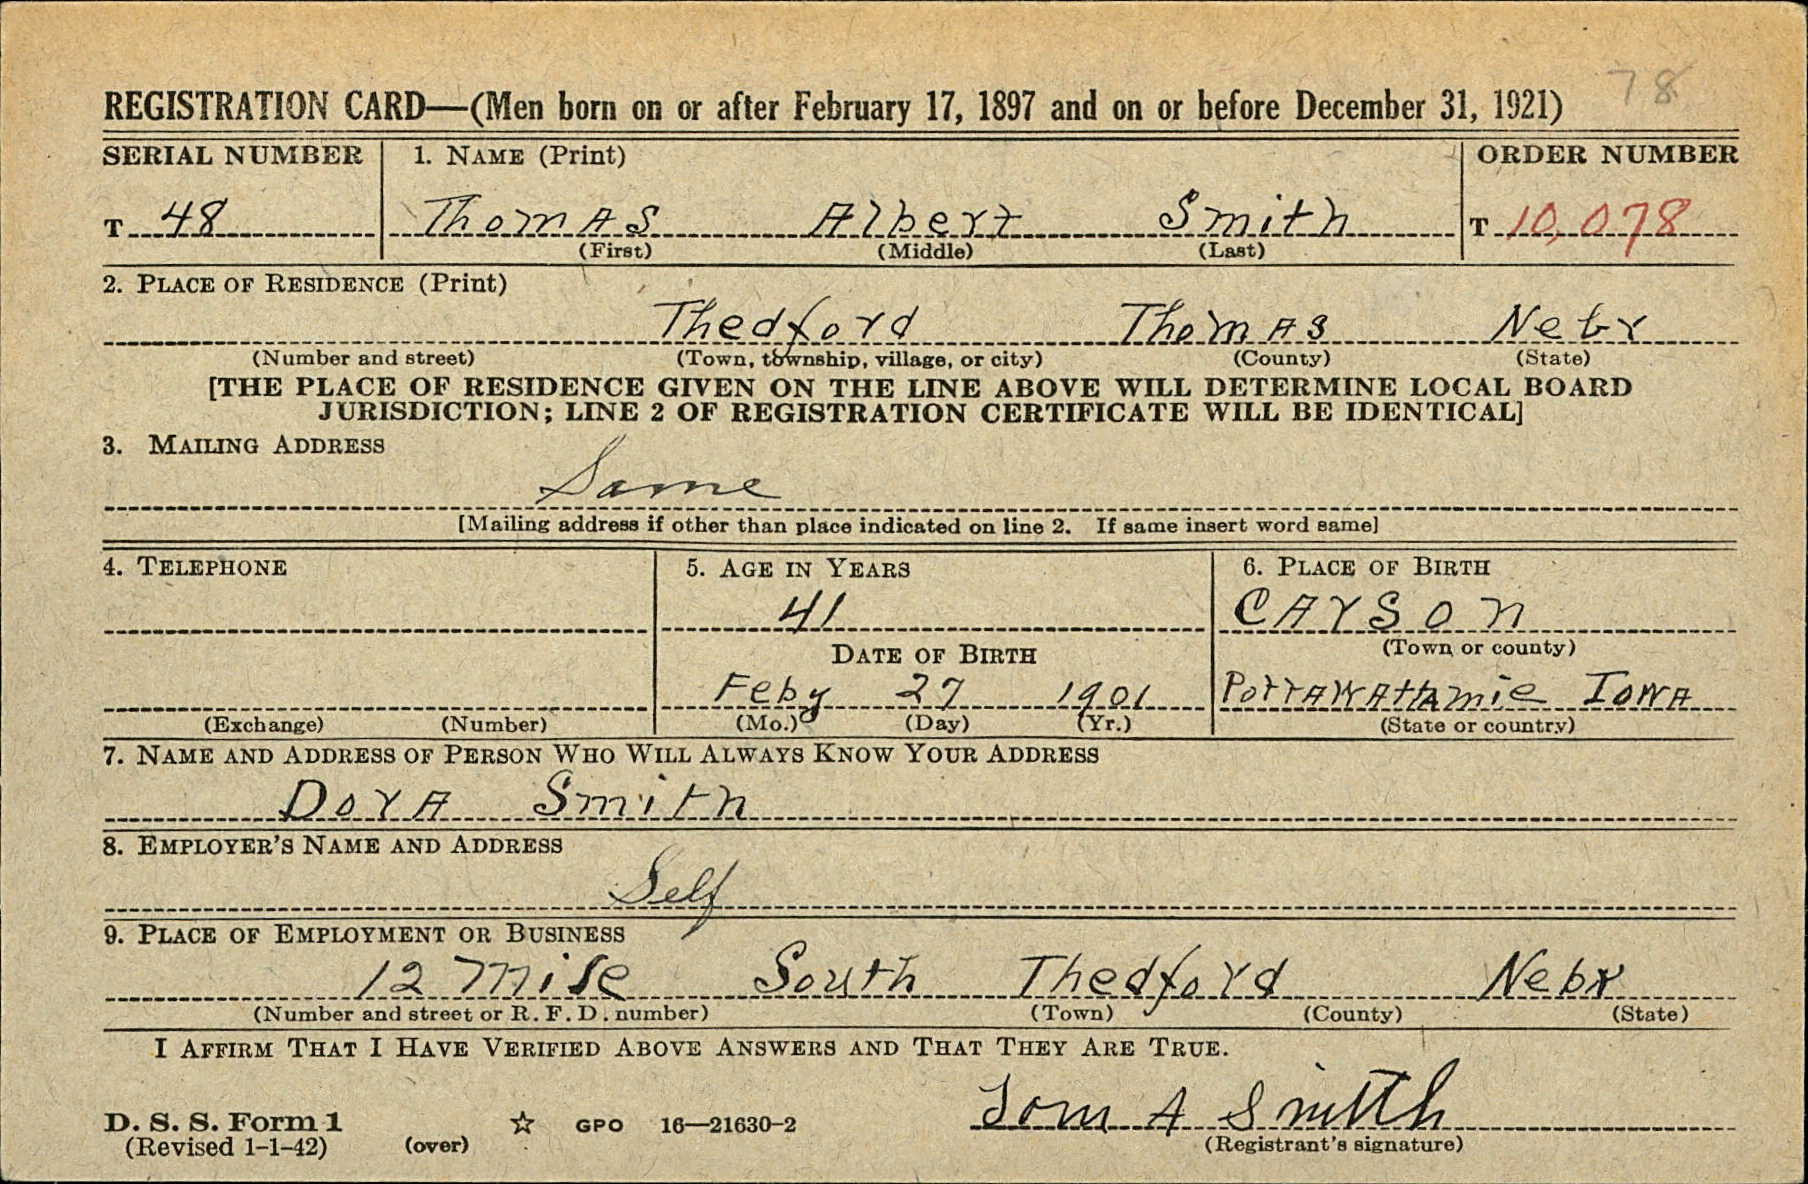 78
REGISTRATION CARD—(Men born on or after February 17, 1897 and on or before December 31, 1921)
SERIAL NUMBER 1. NAME (Print) ORDER NUMBER
T 48 Thomas Albert Smith T 10,078
(First) (Middle) (Last)
2. PLACE OF RESIDENCE (Print)
Thedford Thomas Nebr
(Number and street) (Town, township, village, or city) (County) (State)
[THE PLACE OF RESIDENCE GIVEN ON THE LINE ABOVE WILL DETERMINE LOCAL BOARD
JURISDICTION; LINE 2 OF REGISTRATION CERTIFICATE WILL BE IDENTICAL]
3. MAILING ADDRESS
Same
[Mailing address if other than place indicated on line 2. If same insert word same]
4. TELEPHONE 5. AGE IN YEARS 6. PLACE OF BIRTH
41 CArSon
(Town or county)
DATE OF BIRTH
Feby 27 1901 PottAwAttAmie IowA
(Exchange) (Number) (Mo.) (Day) (Yr.) (State or country)
7. NAME AND ADDRESS OF PERSON WHO WILL ALWAYS KNOW YOUR ADDRESS
DorA Smith
8. EMPLOYER'S NAME AND ADDRESS
Self
9. PLACE OF EMPLOYMENT OR BUSINESS
12 Mile South Thedford Nebr
(Number and street or R. F. D. number) (Town) (County) (State)
I AFFIRM THAT I HAVE VERIFIED ABOVE ANSWERS AND THAT THEY ARE TRUE.
Tom A Smith
D. S. S. Form 1 ☆ GPO 16—21630-2
(Revised 1-1-42) (over) (Registrant's signature)